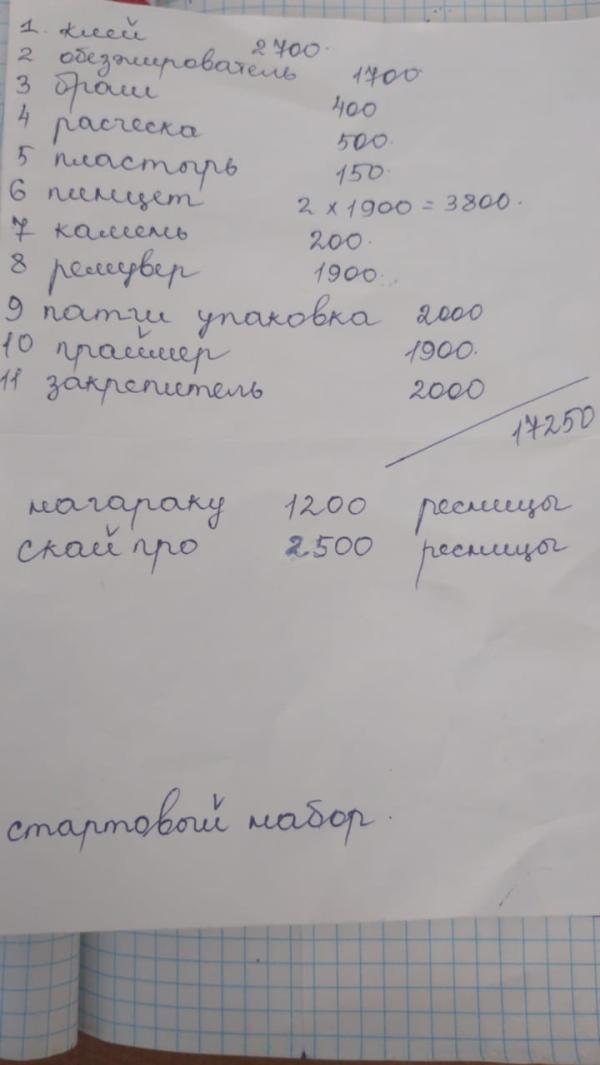 1. клей 2700.
2 обезжириватель 1700
3 браш 400
4 расческа 500.
5 пластырь 150.
6 пинцет 2 x 1900 = 3800.
7 камень 200.
8 ремувер 1900.
9 патчи упаковка 2000
10 праймер 1900.
11 закрепитель 2000
17250
нагараку 1200 ресницы
скай про 2500 ресницы
стартовый набор.